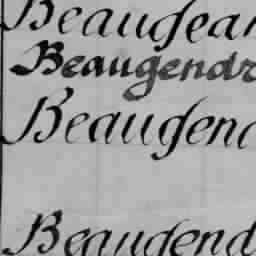 Beaugean
Beaugendr
Beaugend
Beaugend